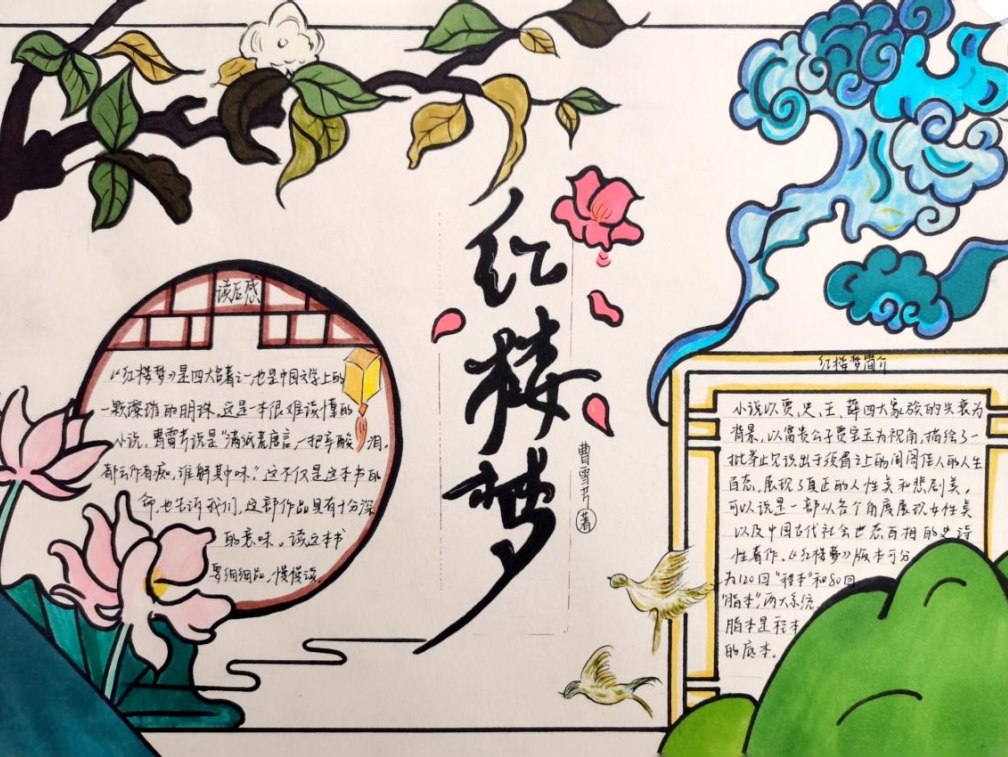 红楼梦
曹雪芹著
读后感
《红楼梦》是四大名著之一也是中国文学上的
一颗璀璨的明珠，这是一本很难读懂的
小说，曹雪芹说是"满纸荒唐言，一把辛酸泪。
都云作者痴，谁解其中味。"这不仅是这本书的
命，也告诉我们，这部作品具有十分深
的意味。读这本书
要细细品，慢慢读。
红楼梦简介
小说以贾、史、王、薛四大家族的兴衰为
背景，以富贵公子贾宝玉为视角，描绘了一
批举止见识出于须眉之上的闺阁佳人的人生
百态，展现了真正的人性美和悲剧美，
可以说是一部从各个角度展现女性美
以及中国古代社会世态百相的史诗
性著作。《红楼梦》版本可分
为120回"程本"和80回
"脂本"，两大系统，
脂本是程本
的底本。